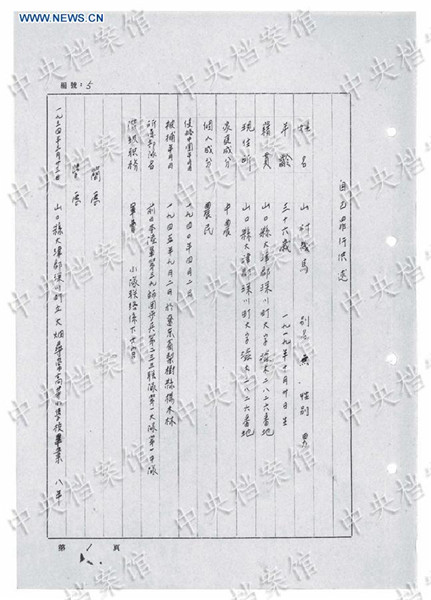 WWW.NEWS.CN
編號:5
自己罪行供述
姓名 山村 馬 別名 無 性別 男
年齡 三十六歲 一九一九年十一月卅日生
籍貫 山口縣大津郡深川町大字深大二八二六番地
現住所 山口縣大津郡深川町大字深大二八二六番地
家庭成分 中農
個人成分 農民
侵略中國年月日 一九四〇年四月二日
被捕年月日 一九四五年九月二日於 梨樹縣楊木林
所屬部隊名 前日本陸軍第三九師團步兵第二三三聯隊第一大隊第一中隊
階級職務 軍曹 小隊聯絡係下士官
簡歷
學歷
一九三四年三月二十三日 山口縣大津郡深川町立大 尋常高等小學校畢業 八年
第 1 頁
中央档案馆